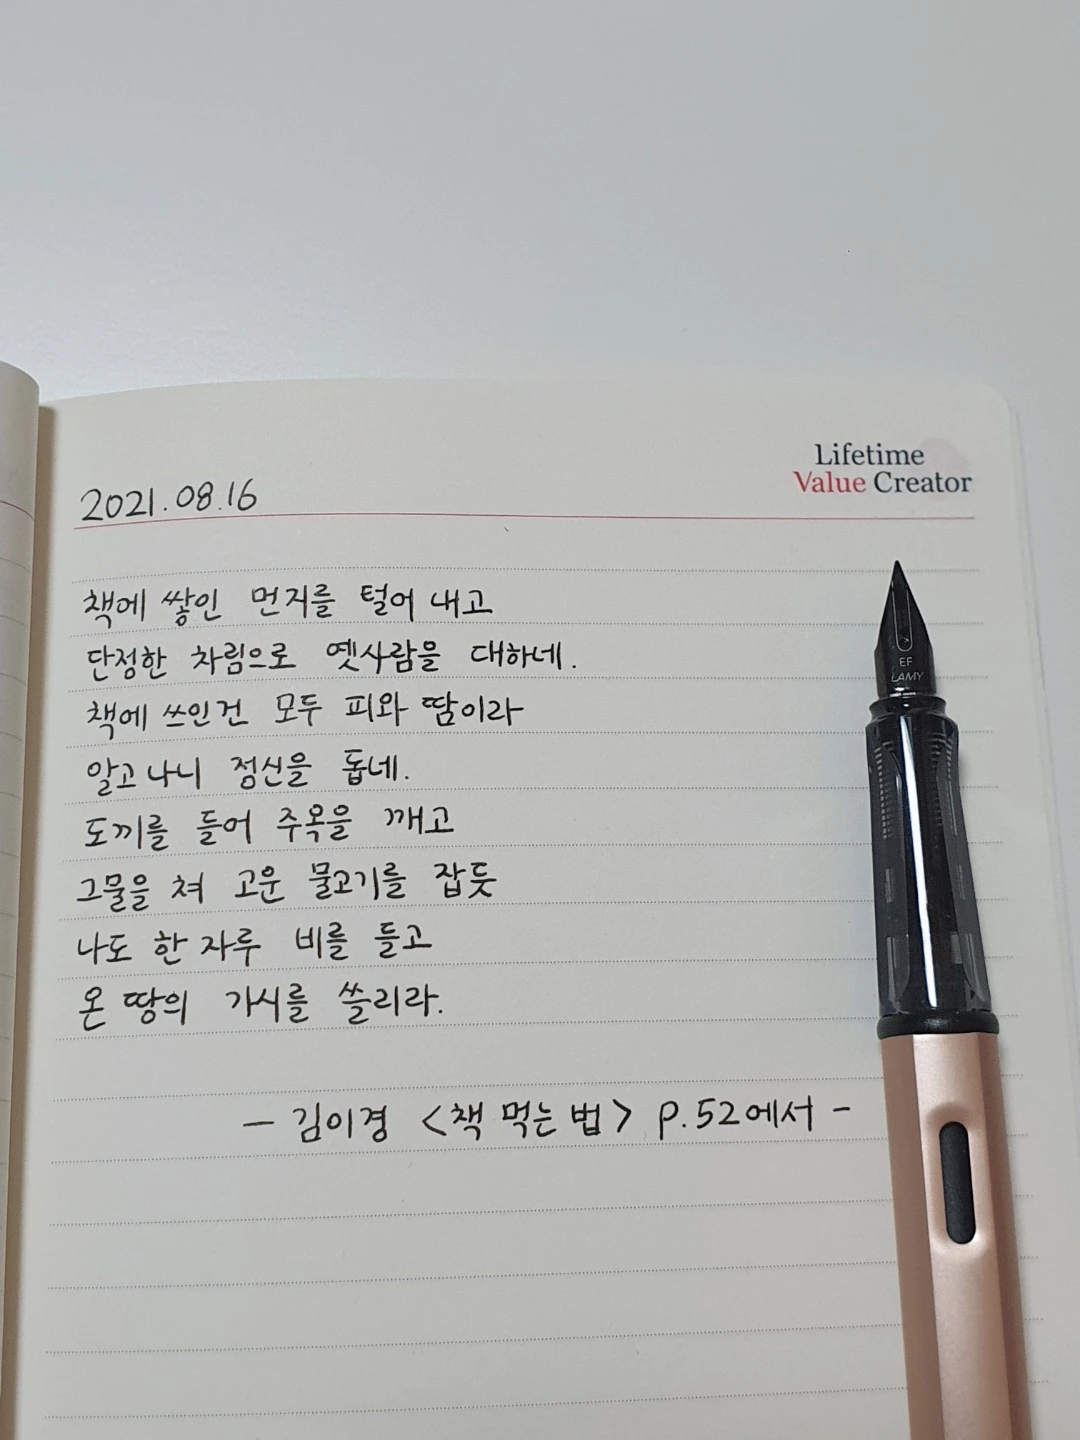 Lifetime
Value Creator
2021.08.16
책에 쌓인 먼지를 털어 내고
단정한 차림으로 옛사람을 대하네.
책에 쓰인건 모두 피와 땀이라
알고 나니 정신을 돕네.
도끼를 들어 주옥을 깨고
그물을 쳐 고운 물고기를 잡듯
나도 한 자루 비를 들고
온 땅의 가시를 쓸리라.
- 김이경 <책 먹는 법> p.52에서 -
EF
LAMY